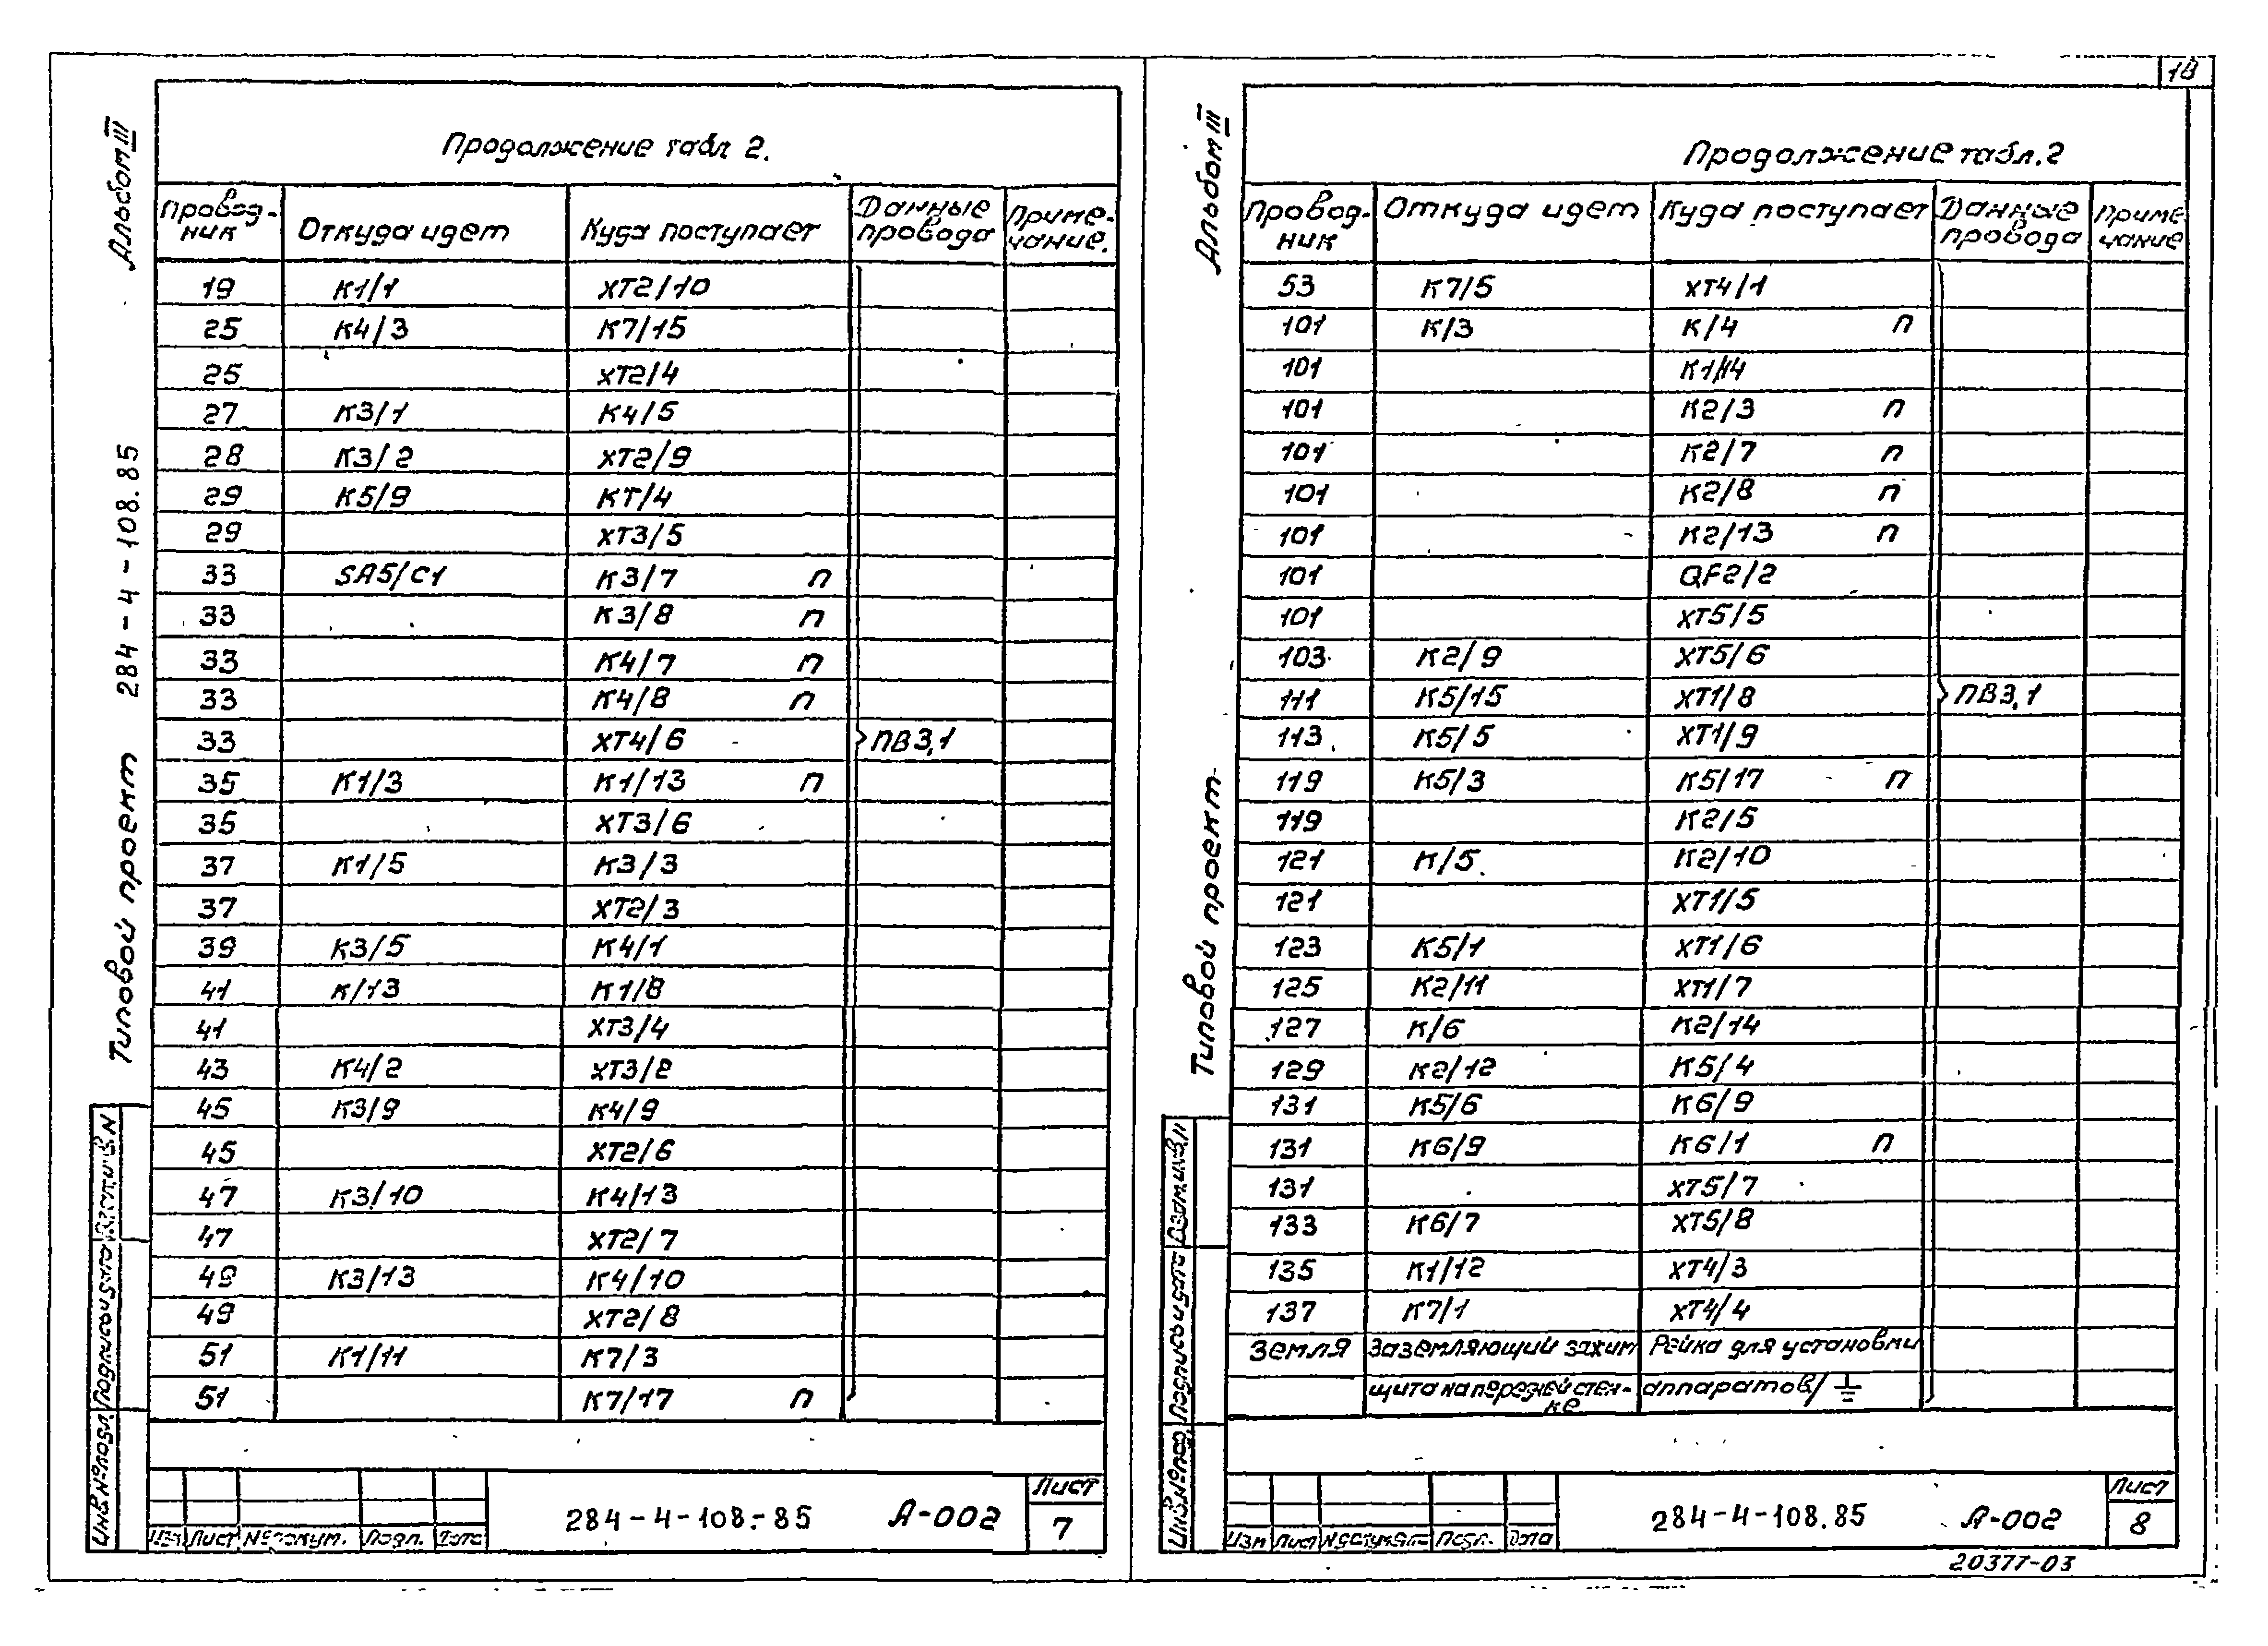 18
Альбом III
Типовой проект 284-4-108.85
Продолжение табл 2.
Провод-
ник
Откуда идет
Куда поступает
Данные
провода
Приме-
чание.
19 К1/1 ХТ2/10
25 К4/3 К7/15
25 ХТ2/4
27 К3/1 К4/5
28 К3/2 ХТ2/9
29 К5/9 КТ/4
29 ХТ3/5
33 SA5/C1 К3/7 п
33 К3/8 п
33 К4/7 п
33 К4/8 п
33 ХТ4/6 ПВ3,1
35 К1/3 К1/13 п
35 ХТ3/6
37 К1/5 К3/3
37 ХТ2/3
39 К3/5 К4/1
41 К/13 К1/8
41 ХТ3/4
43 К4/2 ХТ3/2
45 К3/9 К4/9
45 ХТ2/6
47 К3/10 К4/13
47 ХТ2/7
49 К3/13 К4/10
49 ХТ2/8
51 К1/11 К7/3
51 К7/17 п
Инв №подл
Подпись и дата
Изм Лист №докум. Подп. Дата
284-4-108.-85 А-002
Лист
7
Альбом III
Типовой проект
Продолжение табл.2
Провод-
ник
Откуда идет
Куда поступает
Данные
провода
Приме
чание
53 К7/5 ХТ4/1
101 К/3 К/4 п
101
101 К2/3 п
101 К2/7 п
101 К2/8 п
101 К2/13 п
101 QF2/2
101 ХТ5/5
103 К2/9 ХТ5/6
111 К5/15 ХТ1/8 ПВ3,1
113 К5/5 ХТ1/9
119 К5/3 К5/17 п
119 К2/5
121 К/5 К2/10
121 ХТ1/5
123 К5/1 ХТ1/6
125 К2/11 ХТ1/7
127 К/6 К2/14
129 К2/12 К5/4
131 К5/6 К6/9
131 К6/9 К6/1 п
131 ХТ5/7
133 К6/7 ХТ5/8
135 К1/12 ХТ4/3
137 К7/1 ХТ4/4
Земля Заземляющий зажим Рейка для установки
щита на передней стен- аппаратов/⏚
ке
Инв №подл
Подпись и дата
Взам.инв.
Изм Лист Подп. Дата
284-4-108.85 А-002
Лист
8
20377-03